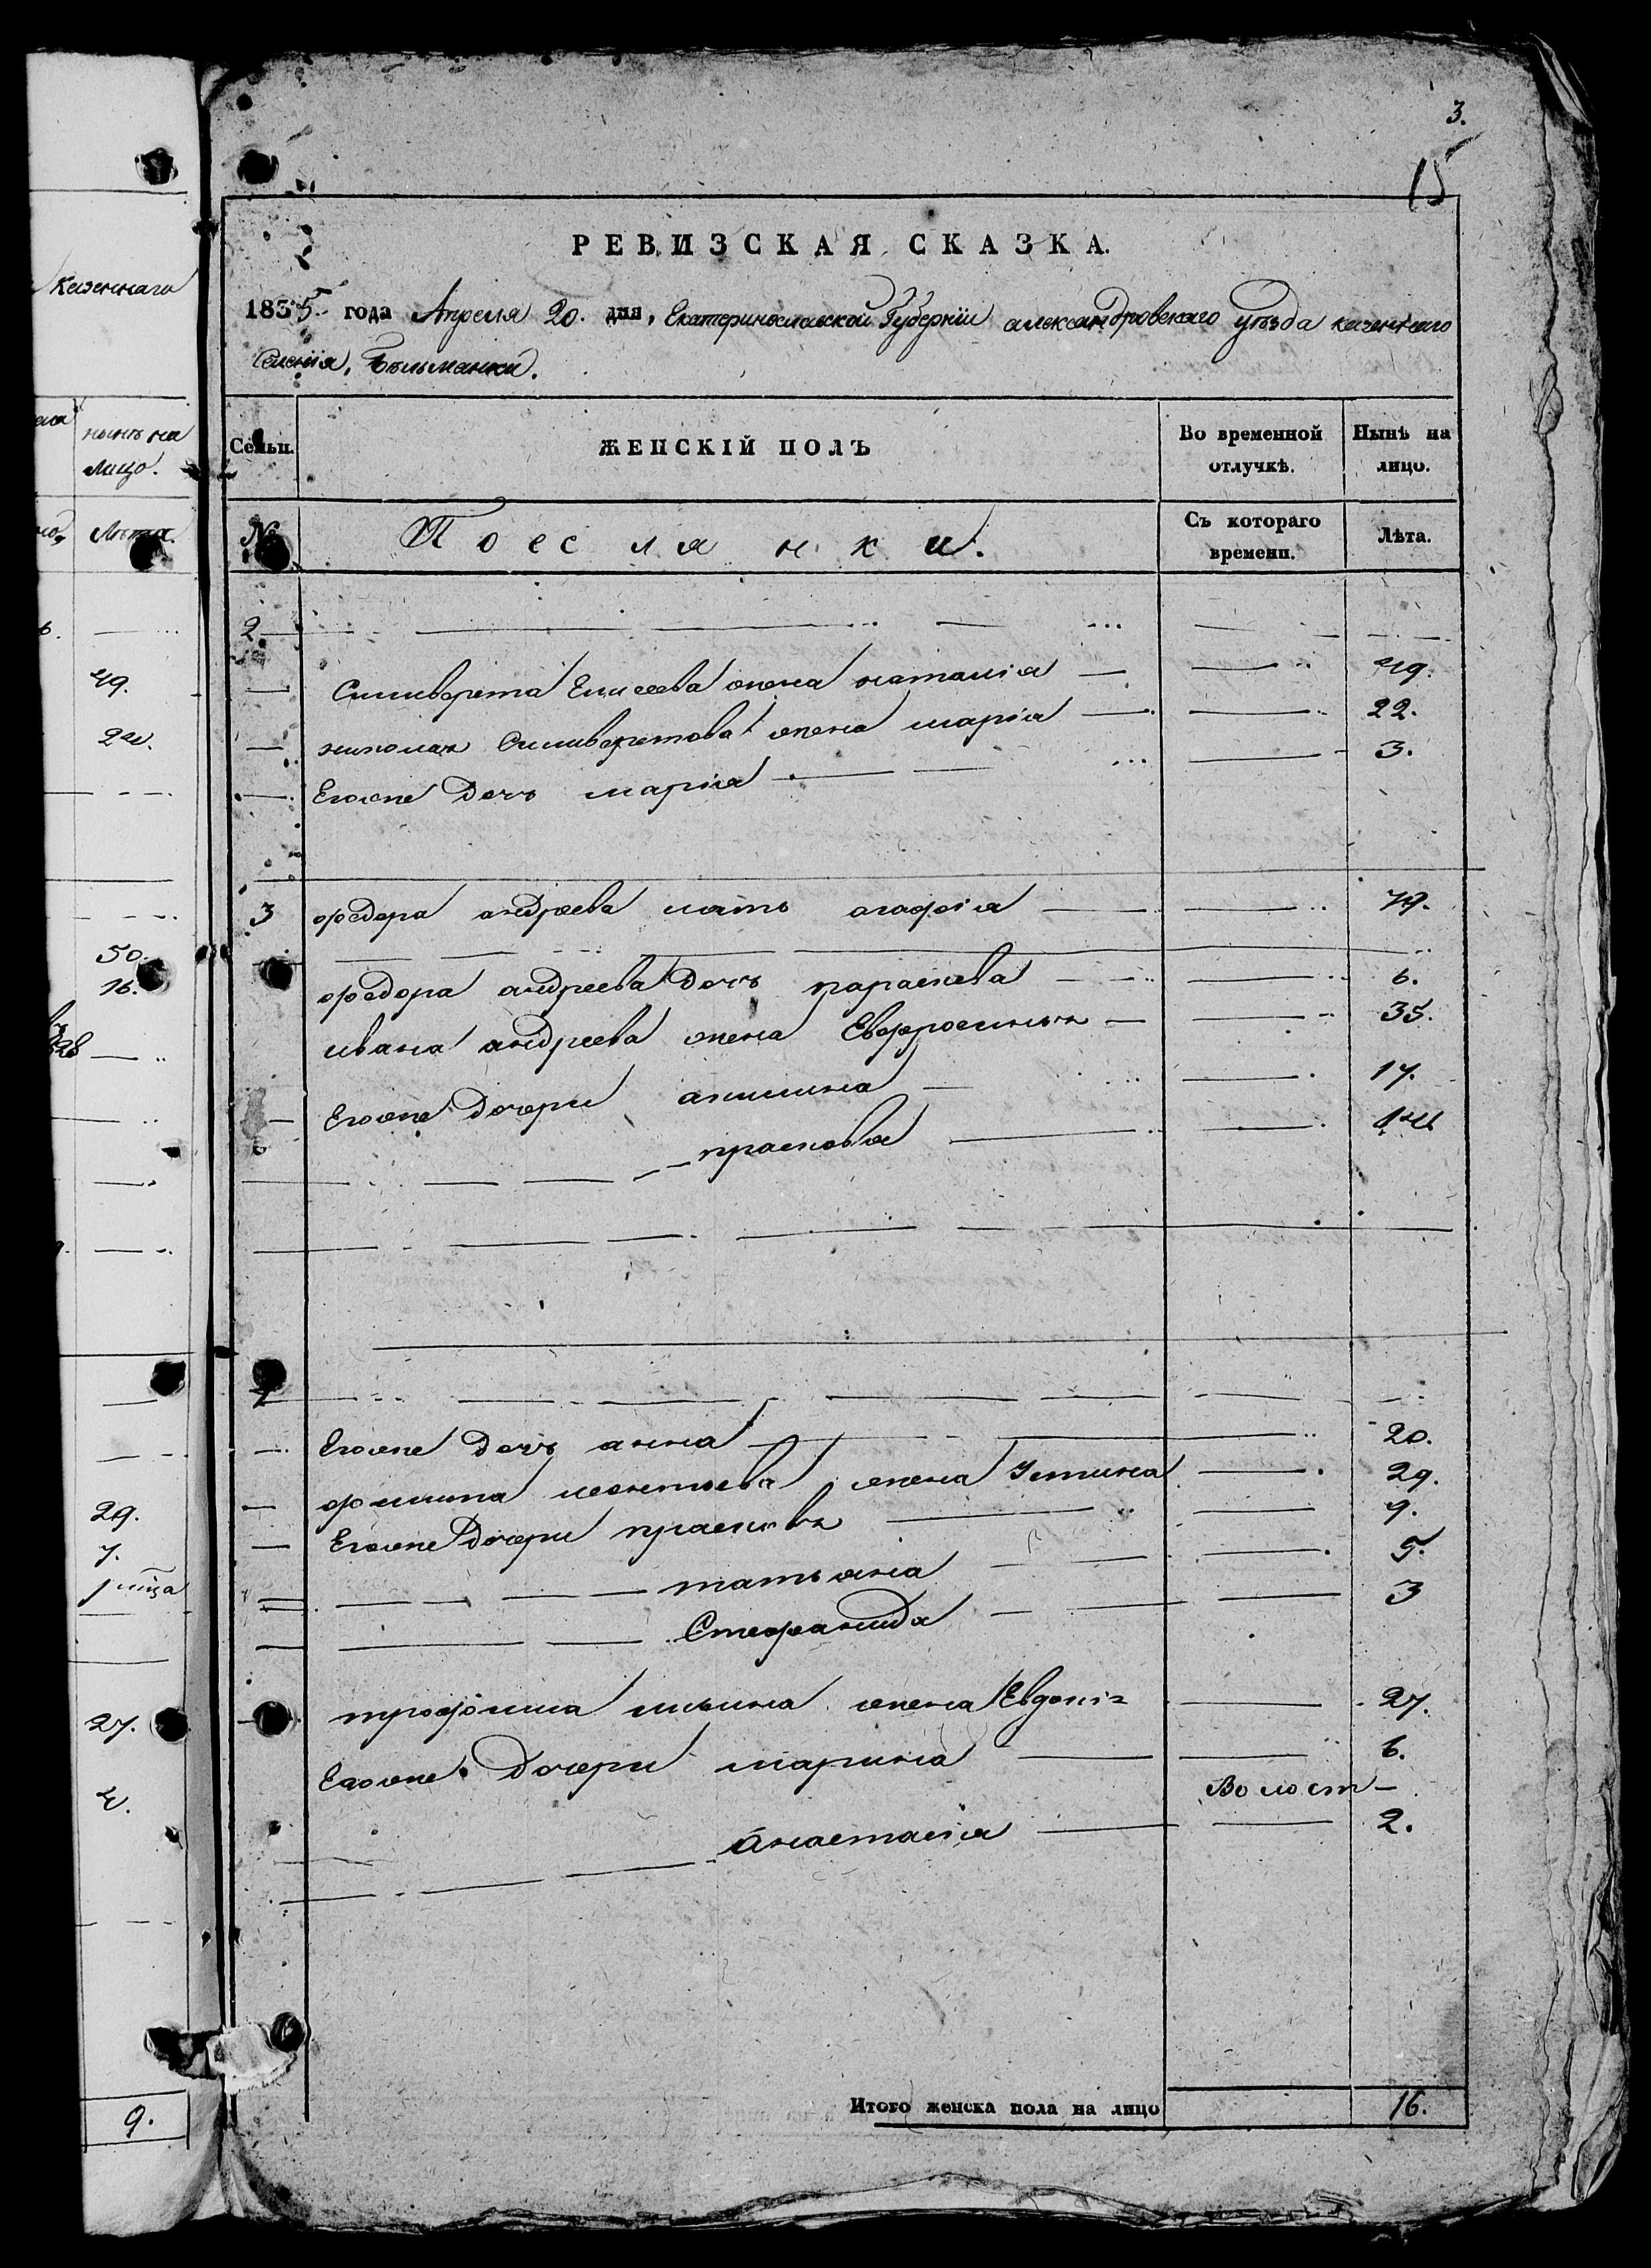 3.
15
РЕВИЗСКАЯ СКАЗКА.
1835 года Апреля 20. дня, Екатеринославской Губерніи александровскаго уѣзда казеннаго
Селенія, Бѣльманки.
Семьи. ЖЕНСКІЙ ПОЛЪ Во временной отлучкѣ. Нынѣ на лицо.
№ Поселянки. Съ котораго времени. Лѣта.
2
Силиверста Елисеева жена наталія 49.
николая Силиверстова жена марія 22.
Егоже Дочь марія 3.
3 федора андреева мать агафія 79.
федора андреева Дочь параскева 6.
ивана андреева жена Евфросинья 35.
Егоже Дочери акилина 17.
прасковья 14
Егоже Дочь анна 20.
филипа леонтьева жена Устина 29.
Егоже Дочери прасковья 9.
татьяна 5.
Стефанида 3
трофима ильина жена Евдокія 27.
Егоже Дочери марина 6.
Волост
анастасія 2.
Итого женска пола на лицо 16.
казеннаго
нынѣ на
лицо.
Лѣта.
49.
24.
50.
16.
29.
7.
27.
9.